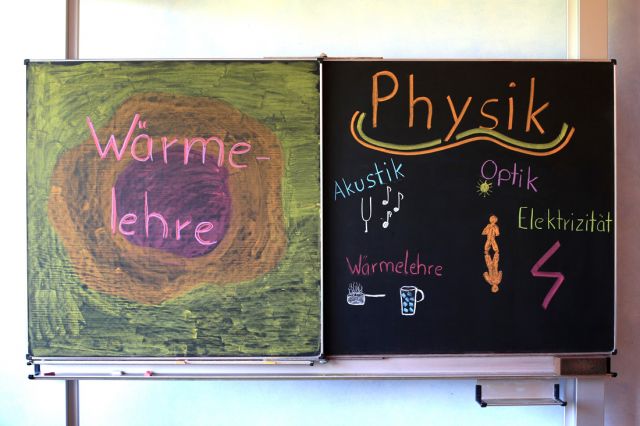 Wärme-
lehre
Physik
Akustik
Optik
Elektrizität
Wärmelehre